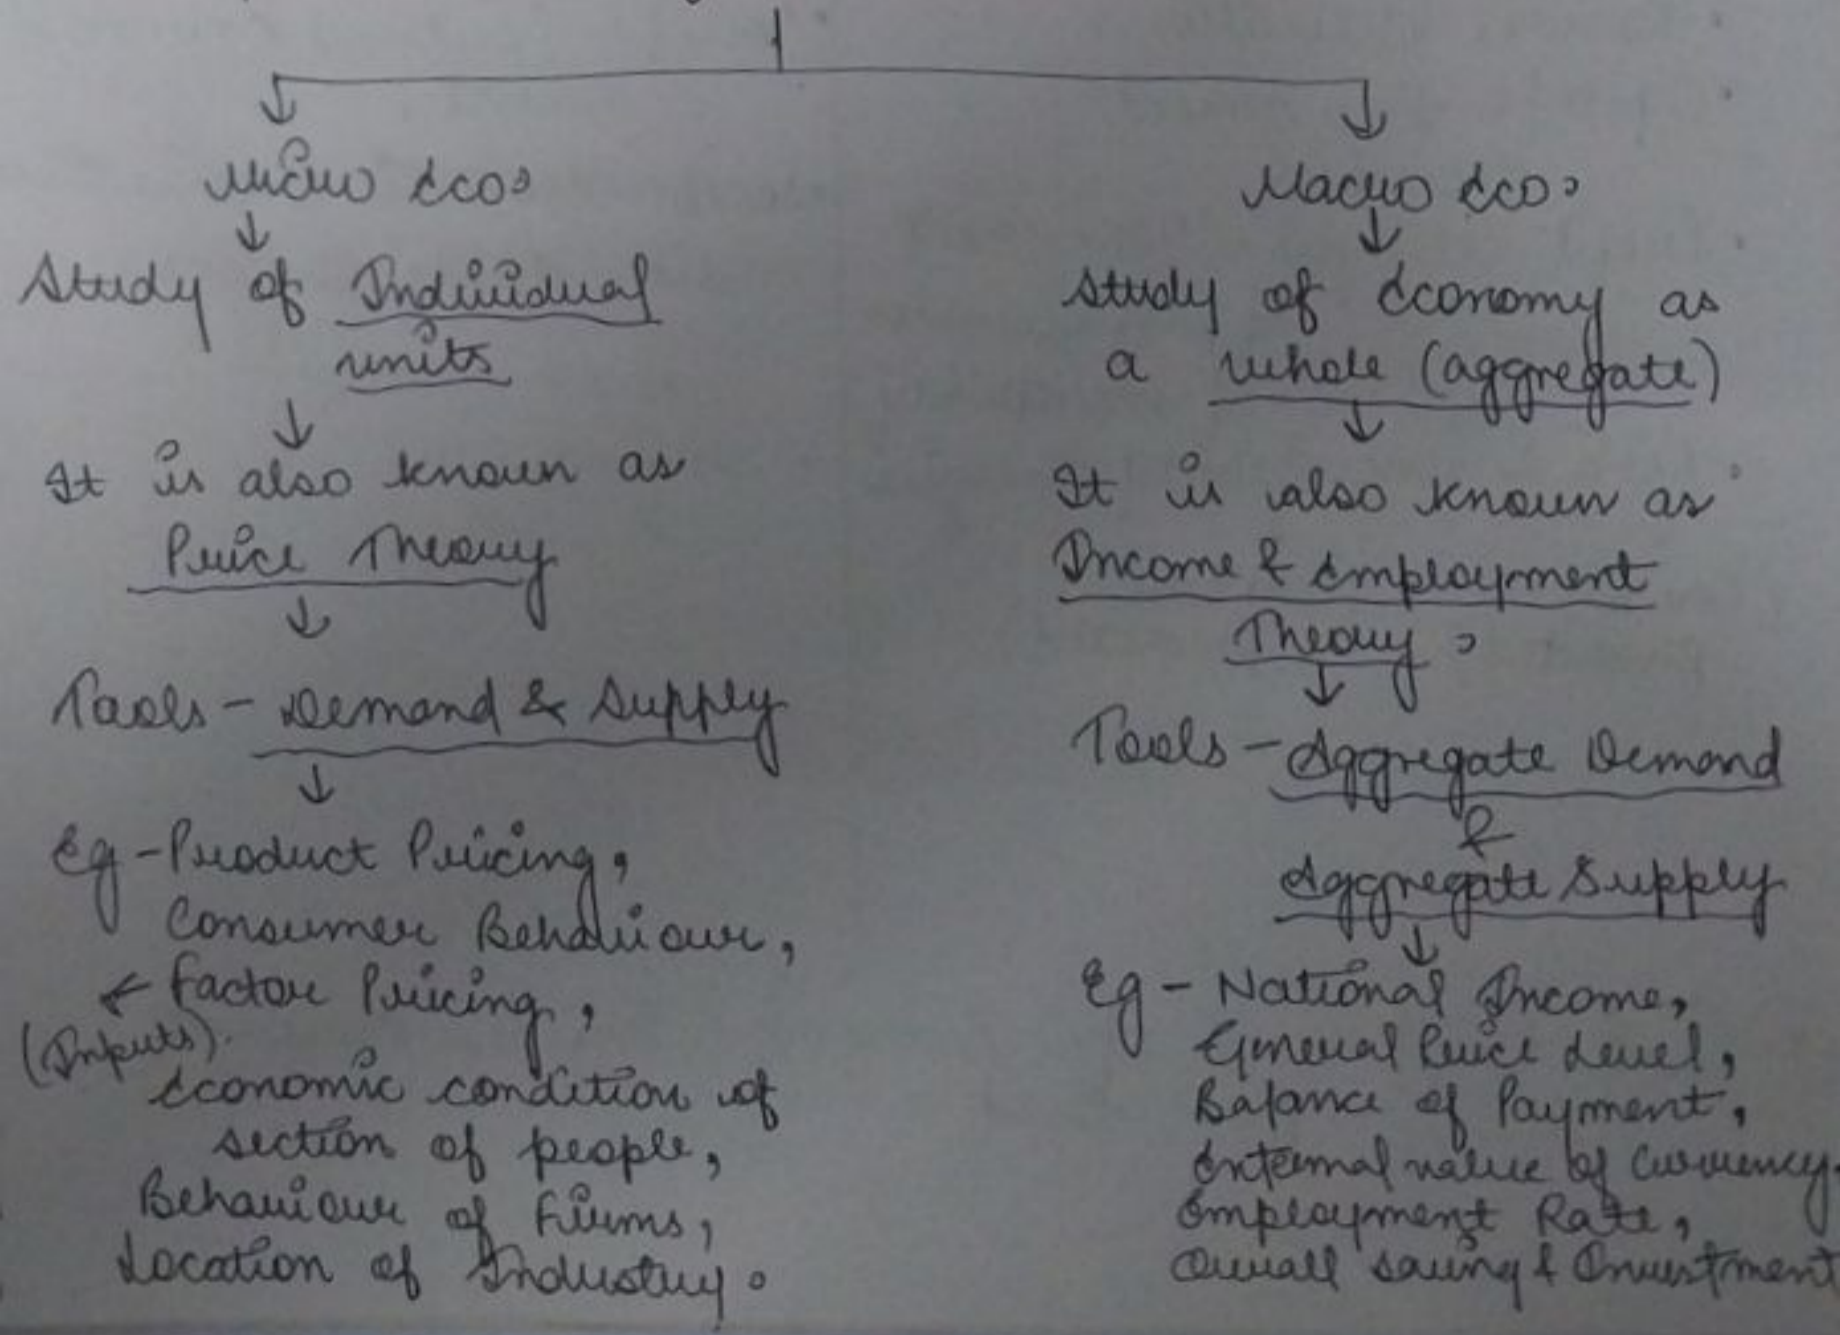 Micro Eco.
Study of Individual
units
It is also known as
Price Theory
Tools - Demand & Supply
Eg - Product Pricing,
Consumer Behaviour,
Factor Pricing,
(Inputs).
Economic condition of
section of people,
Behaviour of Firms,
Location of Industry.
Macro Eco.
Study of Economy as
a whole (aggregate)
It is also known as
Income & Employment
Theory.
Tools - Aggregate Demand
&
Aggregate Supply
Eg - National Income,
General Price Level,
Balance of Payment,
value of Currency
Employment Rate,
Overall saving & Investment